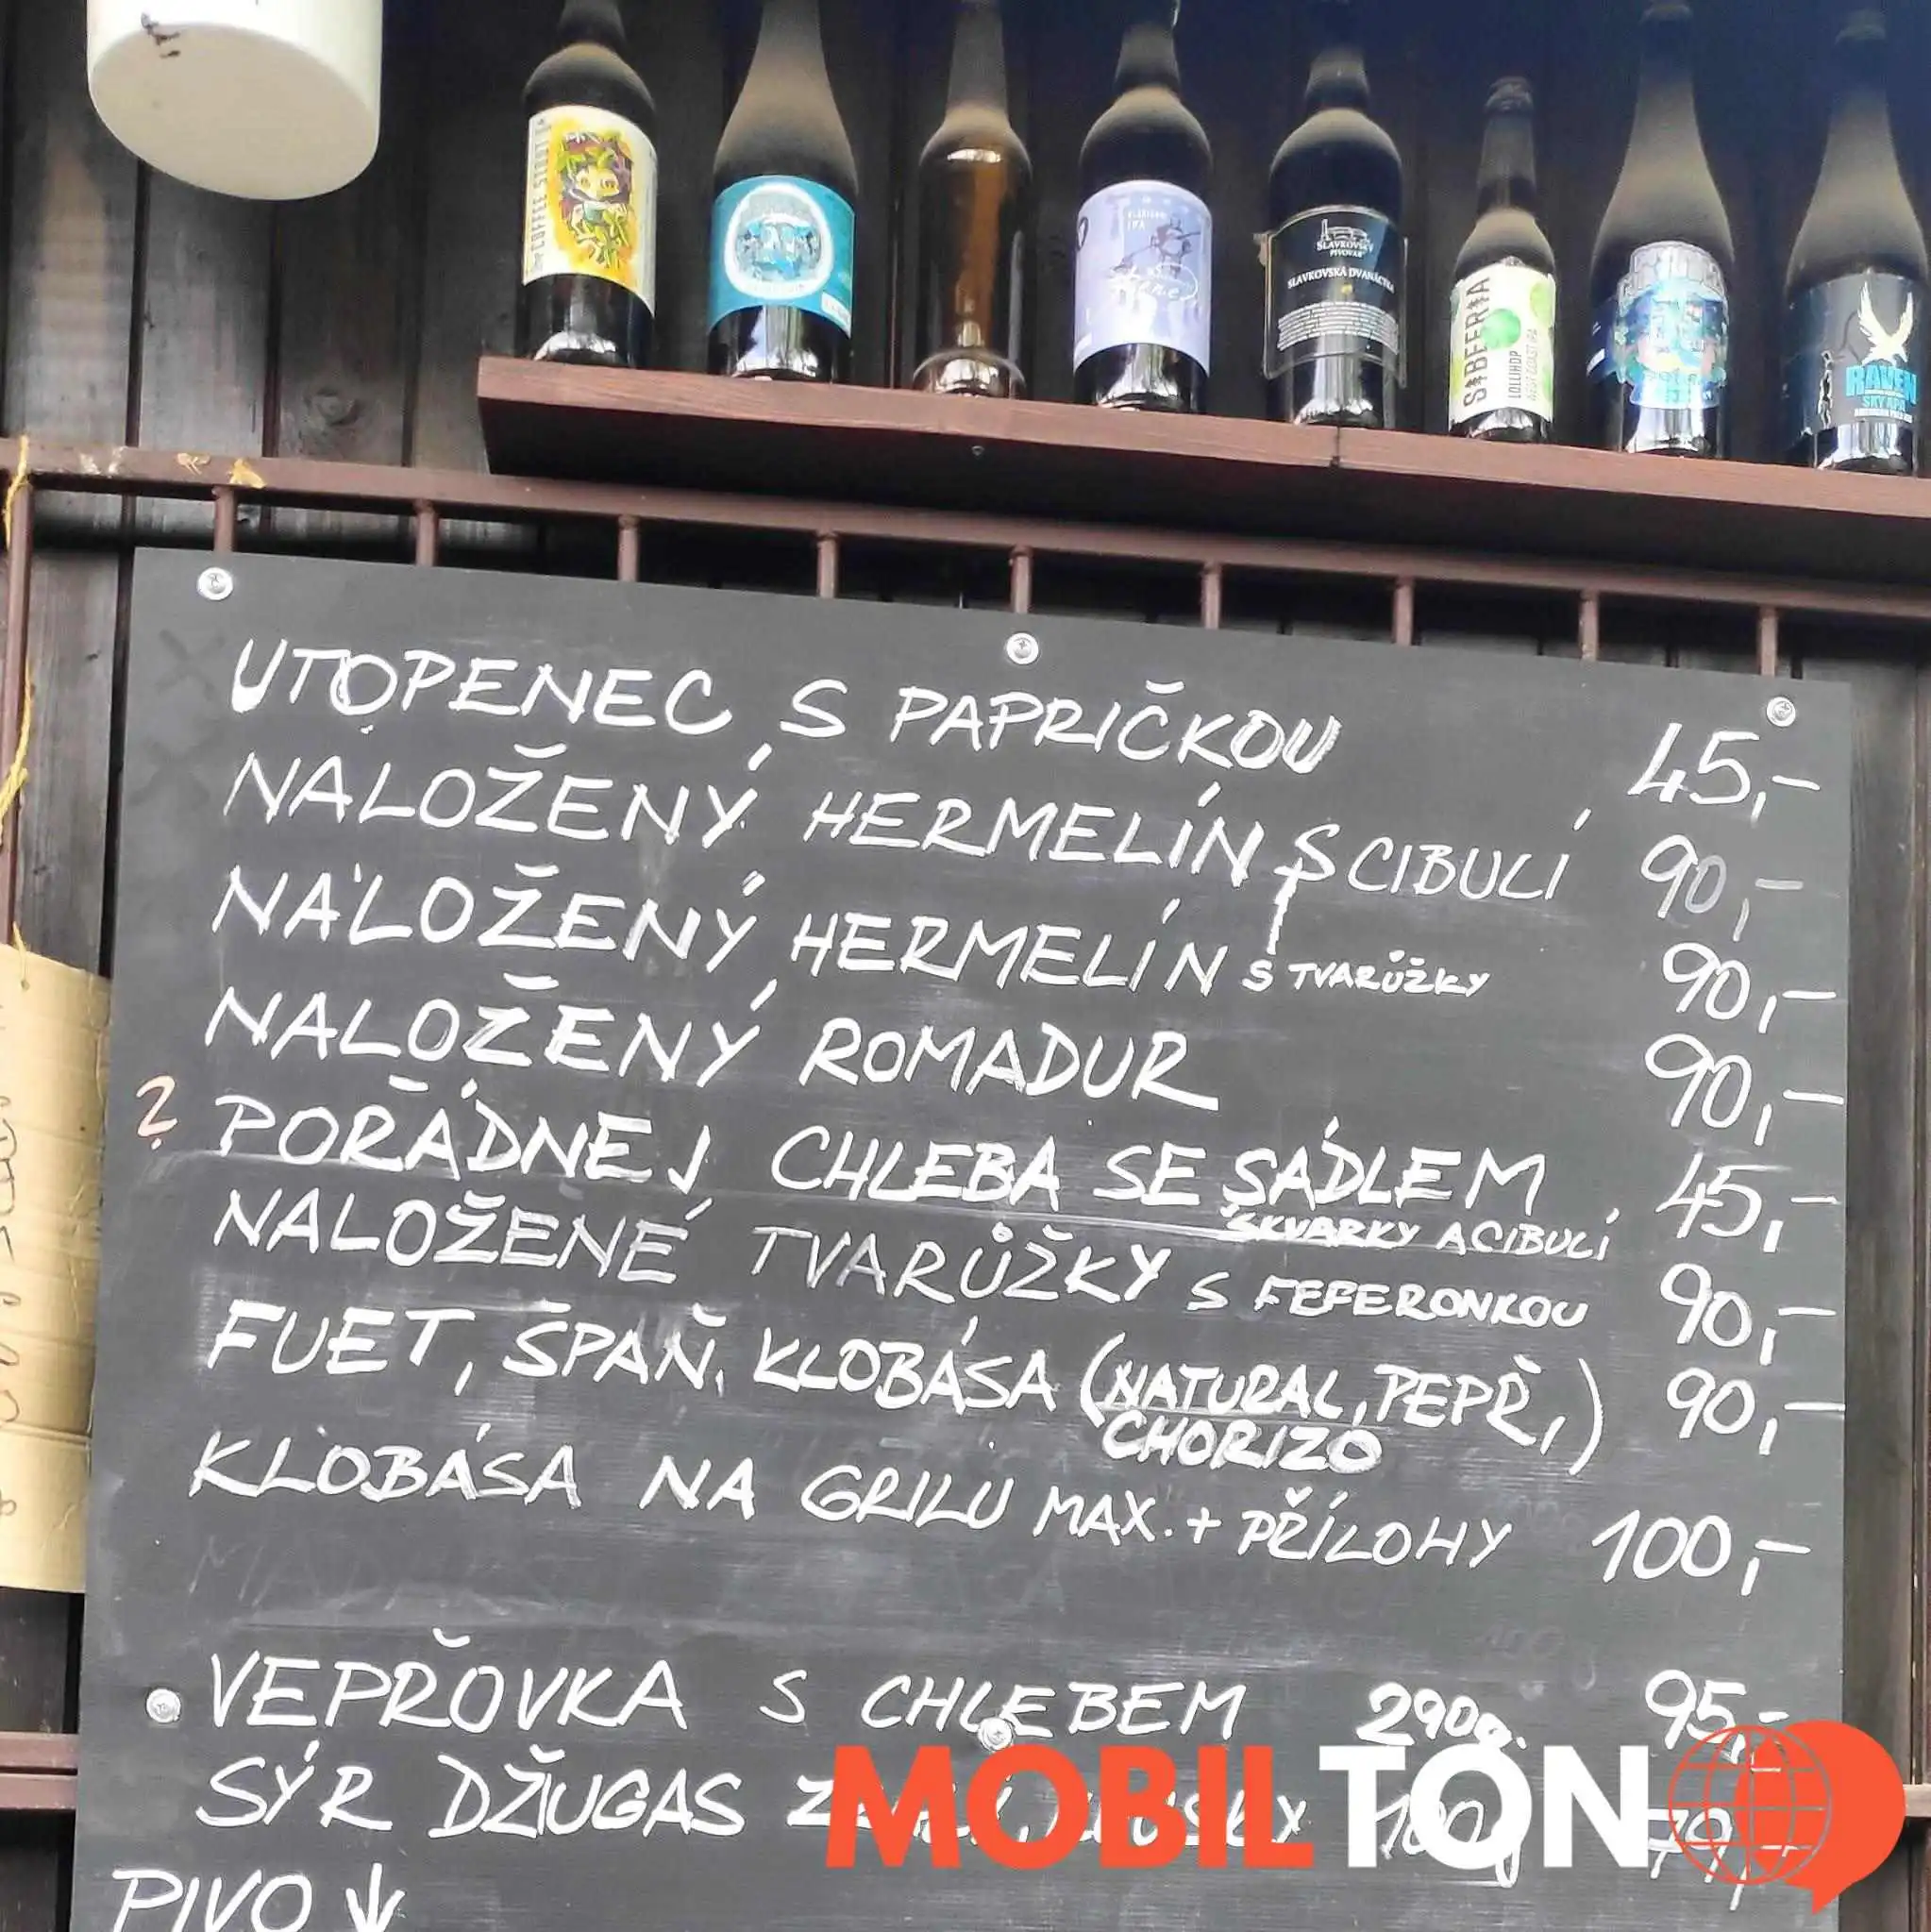 COFFEE
SLAVKOVSKÝ
PIVOVAR
SLAVKOVSKÁ DVANÁCTKA
SIBEERIA
LOLLIHOP
WEST COAST IPA
RAVEN
SKY APA
UTOPENEC S PAPRIČKOU 45,-
NALOŽENÝ HERMELÍN S CIBULÍ 90,-
NALOŽENÝ HERMELÍN S TVARŮŽKY 90,-
NALOŽENÝ ROMADUR 90,-
? POŘÁDNEJ CHLEBA SE SÁDLEM 45,-
ŠKVARKY A CIBULÍ
NALOŽENÉ TVARŮŽKY S FEFERONKOU 90,-
FUET, ŠPAŇ. KLOBÁSA (NATURAL, PEPŘ,) 90,-
CHORIZO
KLOBÁSA NA GRILU MAX. + PŘÍLOHY 100,-
VEPŘOVKA S CHLEBEM 290g. 95,-
SÝR DŽIUGAS 100g 79,-
PIVO ↓
MOBILTON